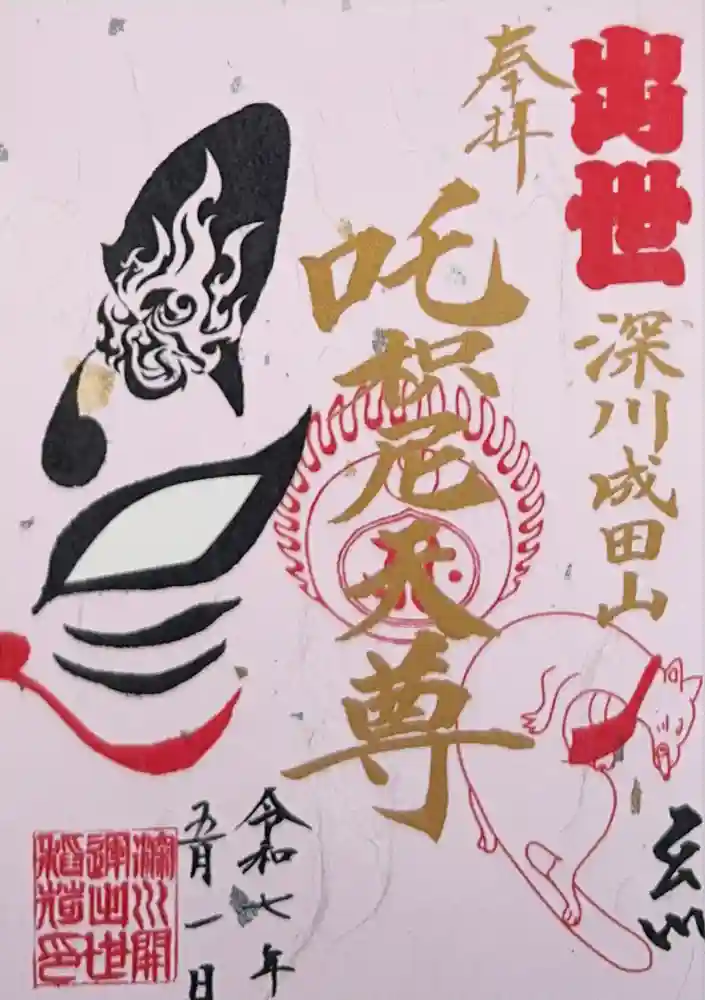 出世
深川成田山
奉拝
吒枳尼天尊
令和七年
五月一日
深川開
運出世
稲荷印